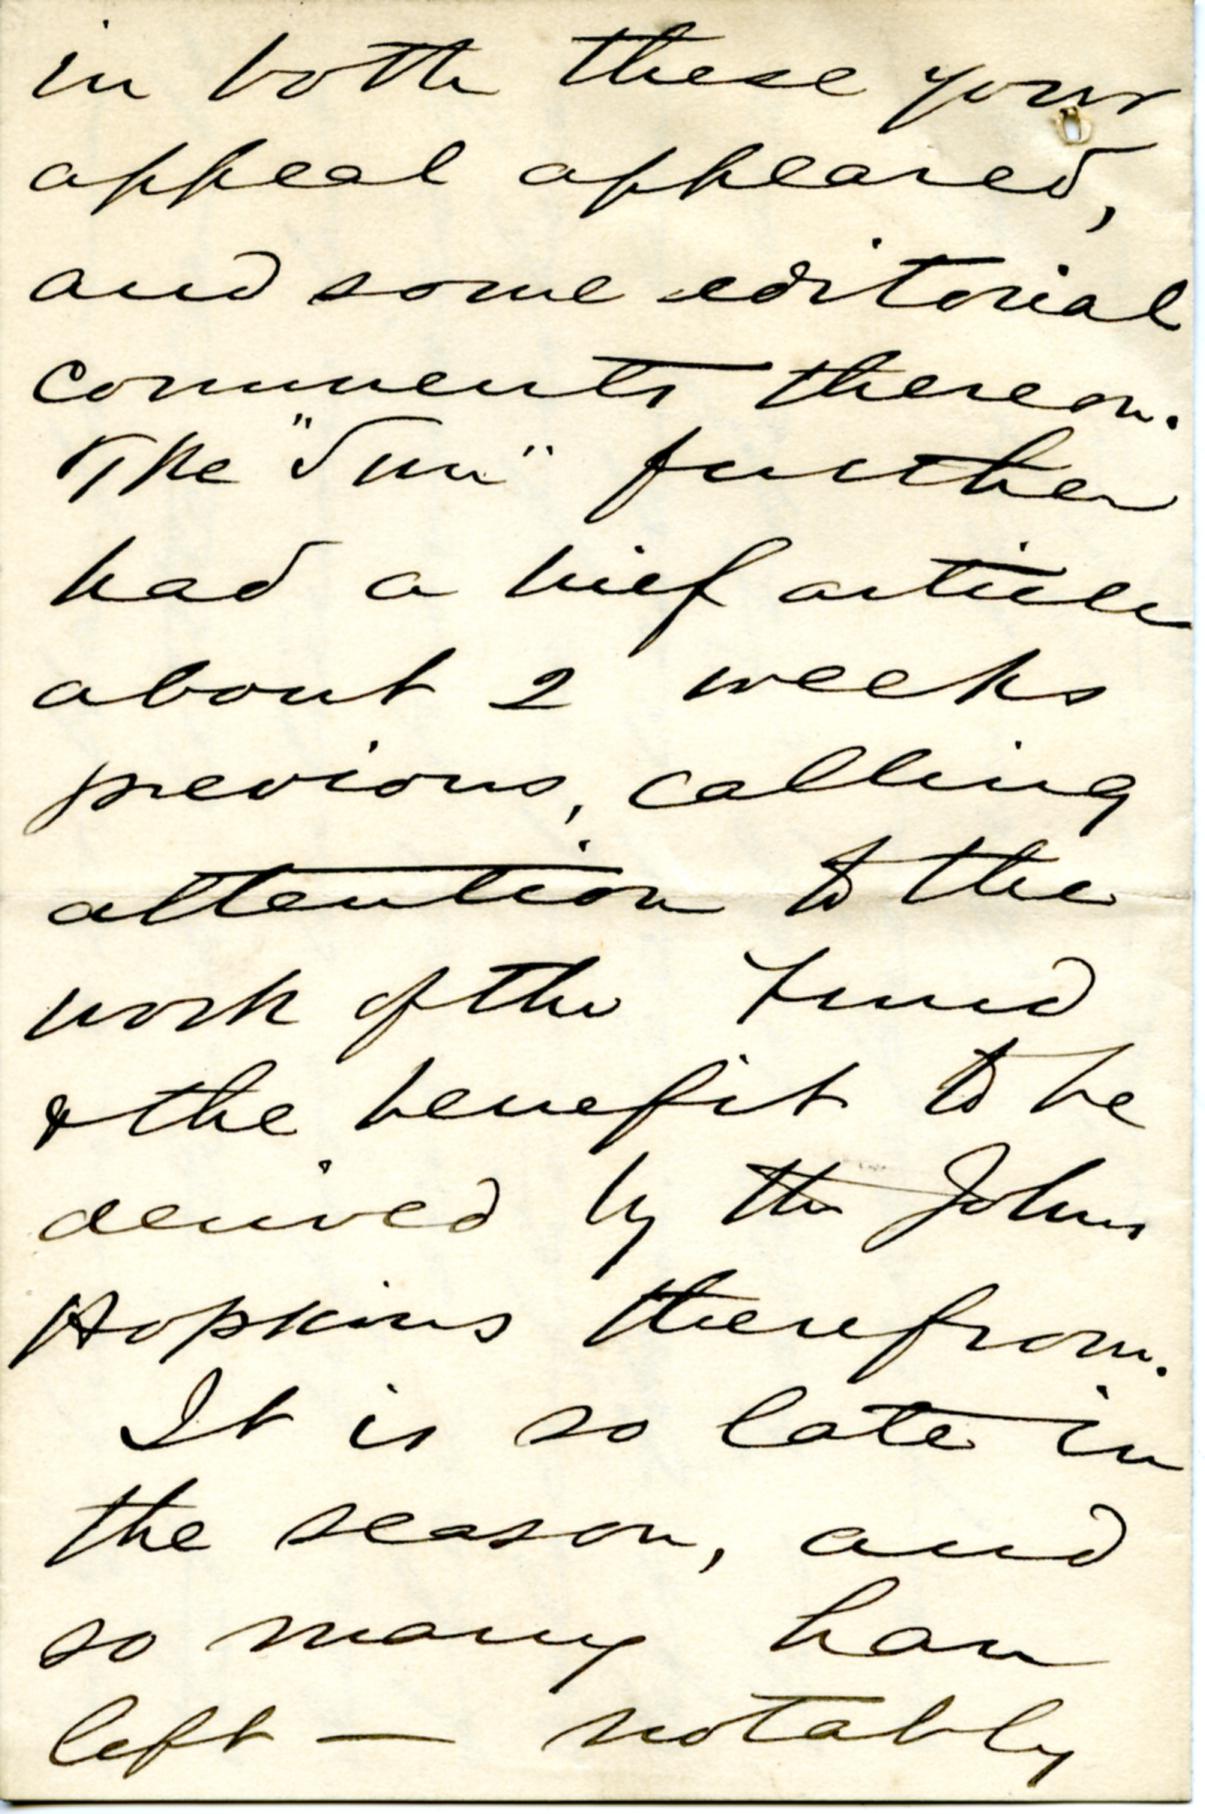 in both these your
appeal appeared,
and some editorial
comments thereon.
The "Sun" further
had a brief article
about 2 weeks
previous, calling
attention to the
work of the Fund
& the benefit to be
derived by the Johns
Hopkins therefrom.
It is so late in
the season, and
so many have
left — notably